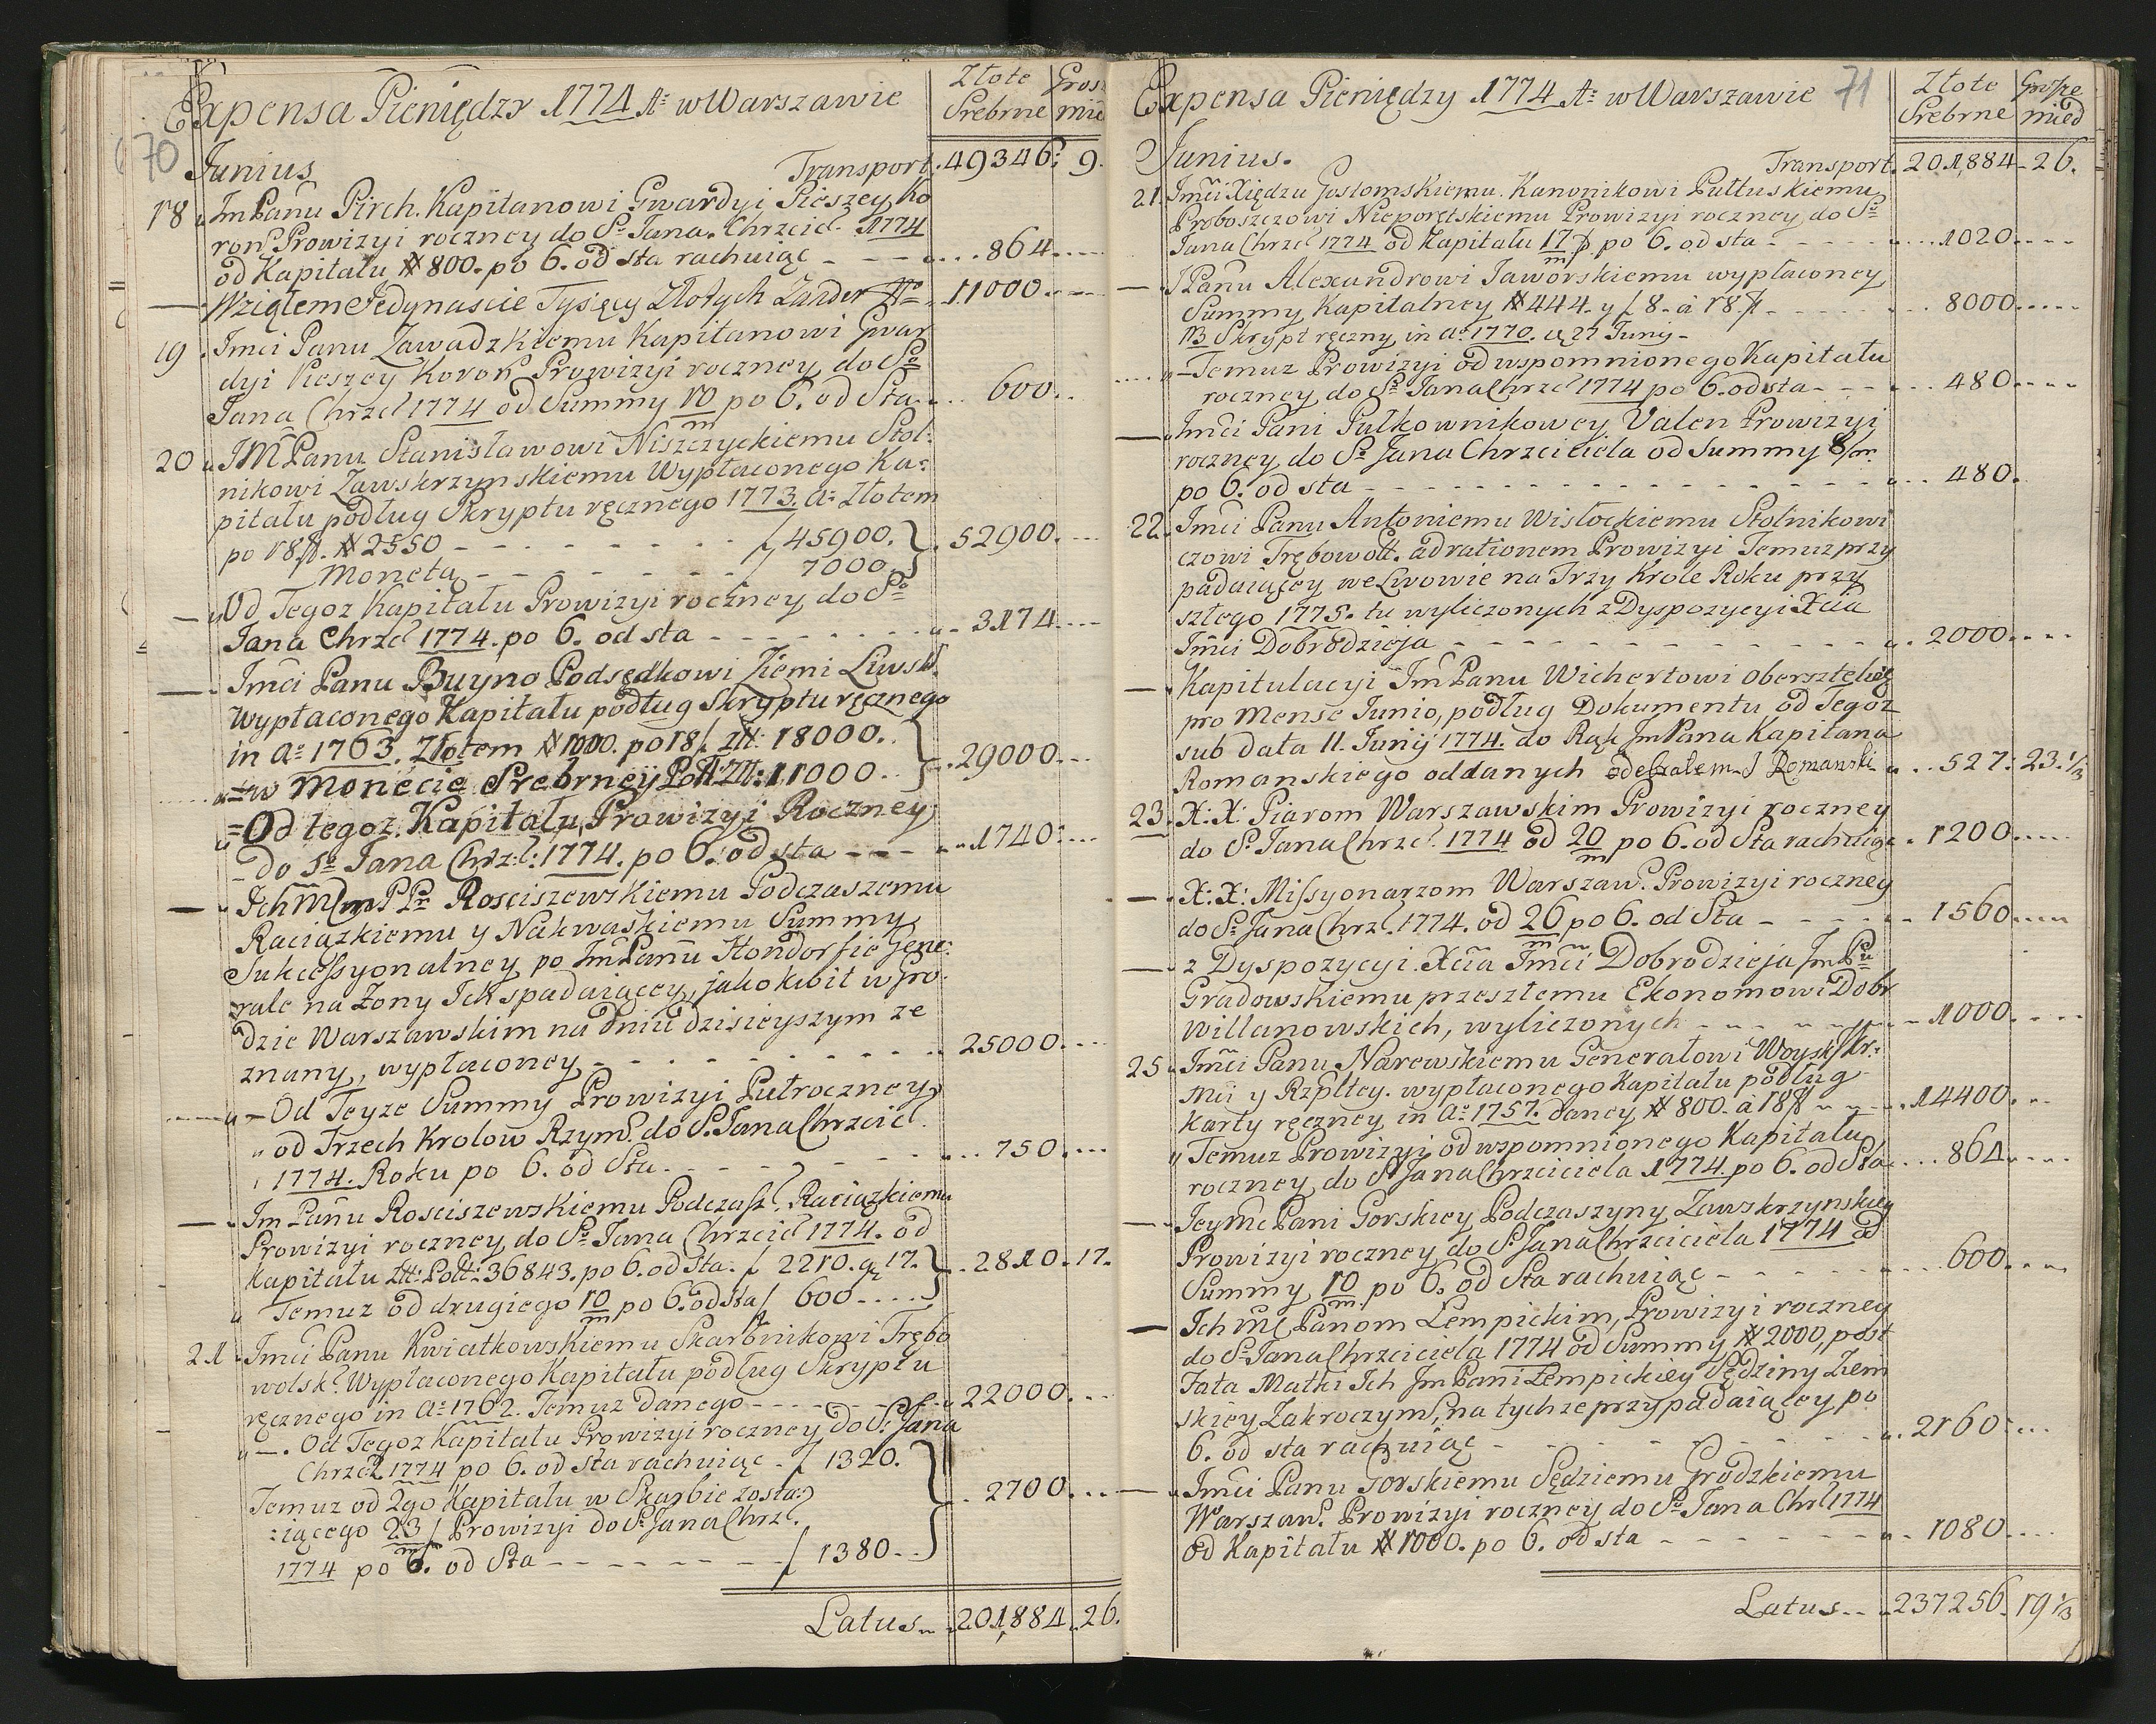 Expensa Pieniędzy 1774 Aº w Warszawie
Złote Srebrne
Grosz mie
70
Junius
Transport. 49346: 9.
18 ImPanu Pirch. Kapitanowi Gwardyi Pieszey Ko
ron. Prowizyi roczney do Sº Jana Chrzcic. 1774
od Kapitału # 800. po 6. od sta rachuiąc - - - 864
— Wziąłem Jedynascie Tysięcy Złotych Zander 11000
19 Imci Panu Zawadzkiemu Kapitanowi Gwar
dyi Pieszey Koron Prowizyi roczney do Sº
Jana Chrzcl 1774 od Summy 10/m po 6. od Sta 600
20 JMPanu Stanisławowi Niszczyckiemu Stol:
nikowi Zawskrzynskiemu Wypłaconego Ka:
pitału podług Skryptu ręcznego 1773. aº Złotem
po 18 f. # 2550 - - - f 45900.
Moneta - - - f 7000 } 52900.
— Od Tegoz Kapitału Prowizyi roczney do Sº
Jana Chrzcl 1774. po 6. od sta - - - 3174
— Imci Panu Buyno Podsędkowi Ziemi Liwsk.
Wypłaconego Kapitału podług Skryptu ręcznego
in Aº 1763. Złotem # 1000. po 18 f. Zł: 18000.
= w Monecie Srebrney Pol: Zł: 11000. } 29000
= Od tegoz Kapitału, Prowizyi Roczney
- do Sº Jana Chrzl: 1774. po 6. od sta - - - 1740
— Ich Mcm PPr Rosciszewskiemu Podczaszemu
Raciązkiemu y Nakwaskiemu Summy
Sukcessyonalney po ImPanu Hondorfie Gene:
rale na Zony Ich spadaiącey, jako kwit w Gro:
dzie Warszawskim na dniu dzisieyszym ze
znany, wypłaconey - - - 25000
— Od Teyze Summy Prowizyi Pułroczney
od Trzech Krolow Rzyms. do S. Jana Chrzcic
1774. Roku po 6. od Sta - - - 750
— Im Panu Rosciszewskiemu Podczasz. Raciązkiemu
Prowizyi roczney do Sº Jana Chrzcicl 1774. od
Kapitału Złł: Pol: 36843. po 6. od sta. f 2210. g 17.
Temuz od drugiego 10/m po 6. od sta f 600 } 2810 17.
21 Imci Panu Kwiatkowskiemu Skarbnikowi Trębo
wolsk. Wypłaconego Kapitału podług Skryptu
ręcznego in aº 1762. Temuz Danego - - - 22000
—. Od Tegoz Kapitału Prowizyi roczney do S. Jana
Chrzcl 1774 po 6. od sta rachuiąc - f 1320.
Temuz od 2go Kapitału w Skarbie zosta:
ziącego 23/m f Prowizyi do S. Jana Chrzl.
1774 po 6. od Sta - - - f 1380 } 2700
Latus 201,884. 26.
Expensa Pieniędzy 1774 Aº w Warszawie
71
Złote Srebrne
Grosze mied
Junius.
Transport. 201,884 - 26.
21. Imci Xiędzu Gostomskiemu Kanonikowi Pułtuskiemu
Proboszczowi Nieporętskiemu Prowizyi roczney do Sº
Jana Chrzcl 1774 od Kapitału 17/m f po 6. od sta - - - 1020
— JPanu Alexandrowi Jaworskiemu wypłaconey
Summy Kapitalney # 444. y f 8 - à 18 f - - - 8000
NB Skrypt ręczny in Aº 1770. 27 Junij -
- Temuz Prowizyi od wspomnionego Kapitału
roczney do Sº Jana Chrzcl 1774 po 6. od sta - - - 480
— Imci Pani Pułkownikowey Valen Prowizyi
roczney do Sº Jana Chrzciciela od Summy 8/m.
po 6. od sta - - - 480.
22. Imci Panu Antoniemu Wisłockiemu Stolnikowi
czowi Trębowolt. ad rationem Prowizyi Temuz przy
padaiącey we Lwowie na Trzy Krole Roku przy
szłego 1775. tu wyliczonych z Dyspozycyi Xcia
Imci Dobrodzieja - - - 2000
— Kapitulacyi ImPanu Wichertowi Obersztelieg
pro Mense Junio, podług Dokumentu od Tegoz
sub data 11. Junij 1774. do Rąk Jm Pana Kapitana
Romanskiego oddanych odebrałem J Romanski 527: 23. 1/3
23. X: X: Piarom Warszawskim Prowizyi roczney
do S. Jana Chrzcl. 1774 od 20/m po 6. od Sta rachuiąc 1200
— X: X: Missyonarzom Warszaw. Prowizyi roczney
do S. Jana Chrzl. 1774. od 26/m po 6. od Sta - - - 1560
— z Dyspozycyi Xcia Imci Dobrodzieja Jm Pu
Gradowskiemu przeszłemu Ekonomowi Dobr
Willanowskich, wyliczonych - - - 1000
25 Imci Panu Narewskiemu Generałowi Woysk Kr:
Mci y Rzpltey. wypłaconego Kapitału podług
Karty ręczney in Aº 1757. daney # 800. à 18 f - - - 14400
Temuz Prowizyi od wspomnionego Kapitału
roczney do S. Jana Chrzciciela 1774. po 6. od Sta 864
— Jeymc Pani Gorskiey Podczaszyny Zawskrzynskiey
Prowizyi roczney do S. Jana Chrzciciela 1774 od
Summy 10/m. po 6. od Sta rachuiąc - - - 600
— Ich mc Panom Lempickim, Prowizyi roczney
do Sº Jana Chrzciciela 1774 od Summy # 2000, post
Fata Matki Ich Jm Pani Lempickiey Sędziny Ziem
skiey Zakroczyms. na tychze przypadaiącey po
6. od sta rachuiąc - - - 2160
— Imci Panu Gorskiemu Sędziemu Grodzkiemu
Warszaw. Prowizyi roczney do Sº Jana Chrl 1774
od Kapitału # 1000. po 6. od sta - - - 1080
Latus 237256. 19 1/3